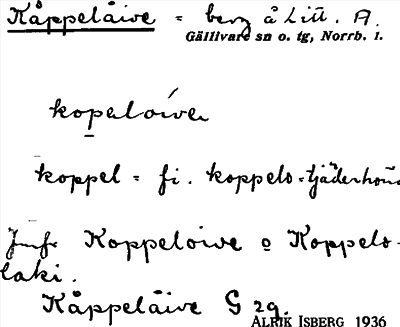 Kåppelåive = berg å Litt. A.
Gällivare sn o. tg, Norrb. l.
kopeloive
koppel = fi. koppelo = tjäderhöna
Jmf. Koppeloive o Koppelo-
laki.
Kåppelåive G 29.
ALRIK ISBERG 1936